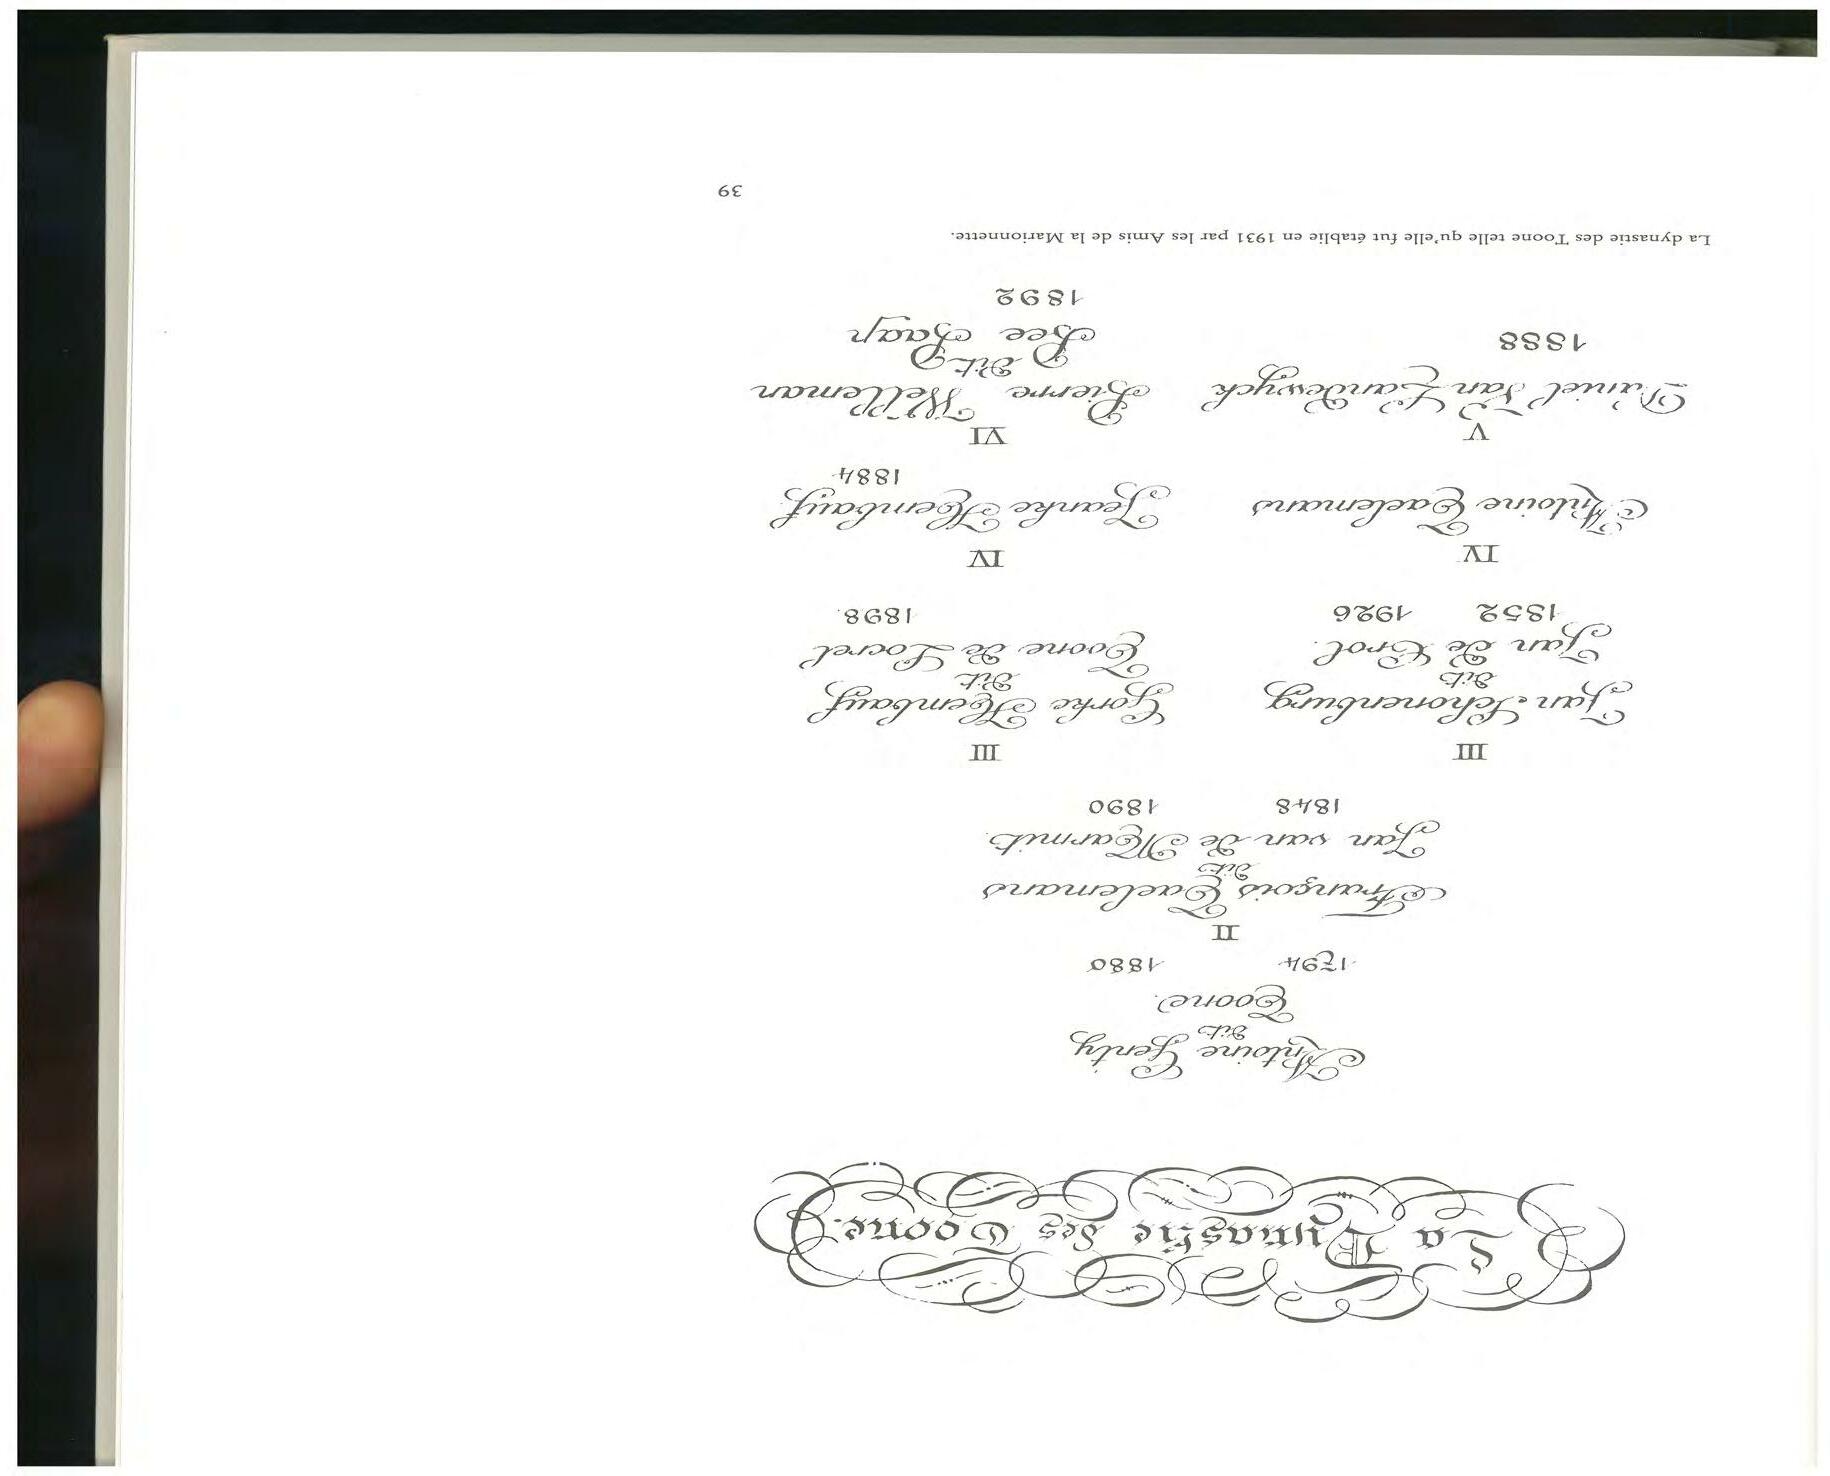 La Dynastie des Toone.
Antoine Genty
dit
Toone.
1794 1880
II
François Taelemans
dit
Jan van de Marmit.
1848 1890
III III
Jan Schonenburg Gorke Hembauf
dit dit
Jan de Crol. Toone de Locrel
1852 1926 1898.
IV IV
Antoine Taelemans Jeanke Hembauf.
1884
V VI
Daniel Van Landewyck Pierre Welleman
dit
Pee Paap
1888 1892
La dynastie des Toone telle qu'elle fut établie en 1931 par les Amis de la Marionnette.
39